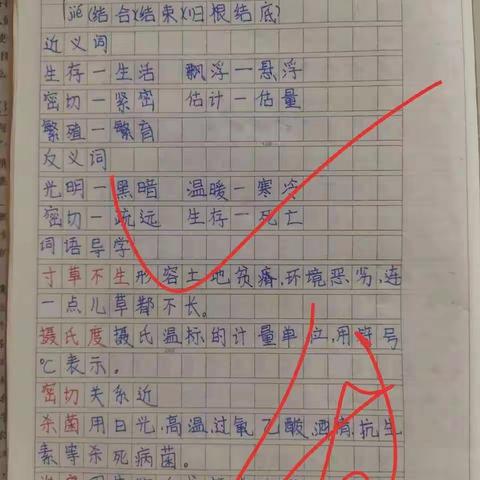 jié(结合)(结束)(归根结底)
近义词
生存一生活 飘浮一悬浮
密切一紧密 估计一估量
繁殖一繁育
反义词
光明一黑暗 温暖一寒冷
密切一疏远 生存一死亡
词语导学
寸草不生形容土地贫瘠,环境恶劣,连
一点儿草都不长。
摄氏度摄氏温标的计量单位,用符号
℃表示。
密切关系近
杀菌用日光,高温,过氧乙酸,酒精,抗生
素等杀死病菌。